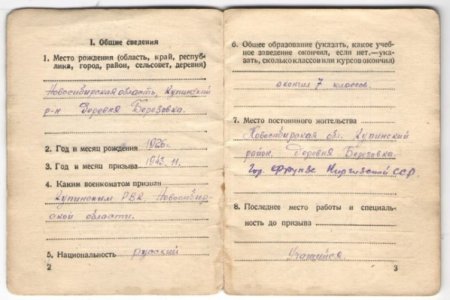 I. Общие сведения
1. Место рождения (область, край, респуб-
лика, город, район, сельсовет, деревня)
Новосибирская область, Купинский
р-н Деревня Березовка.
2. Год и месяц рождения 1926г.
3. Год и месяц призыва 1943. 11.
4. Каким военкоматом призван
Купинским РВК Новосибир
ской области.
5. Национальность русский
2
6. Общее образование (указать, какое учеб-
ное заведение окончил, если нет,—ука-
зать, сколько классов или курсов окончил)
окончил 7 классов.
7. Место постоянного жительства
Новосибирская обл. Купинский
район. Деревня Березовка.
Гор. Фрунзе Киргизский ССР.
8. Последнее место работы и специаль-
ность до призыва
Учащийся
3